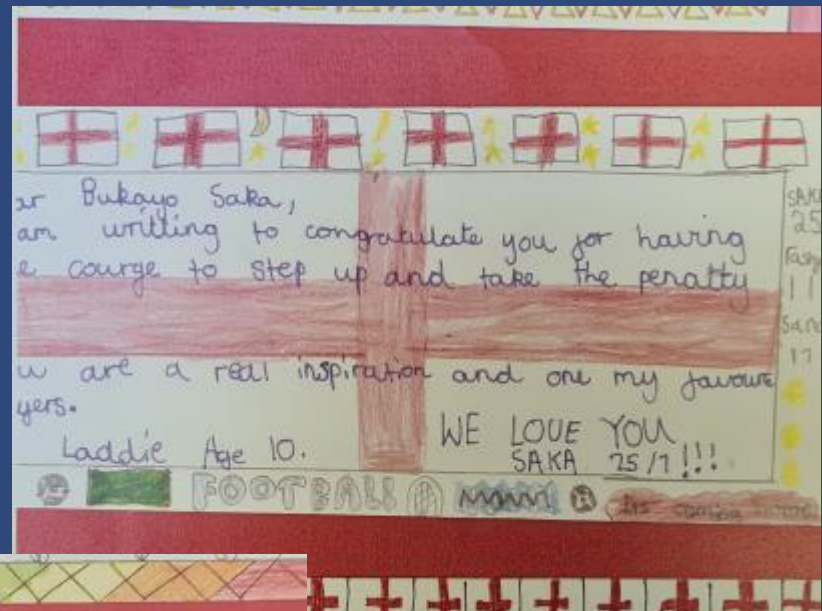 Bukayo Saka,
am writting to congratulate you for having
courge to step up and take the penatty
are a real inspiration and one my favoure
yers.
Laddie Age 10.
WE LOVE YOU
SAKA 25/7!!!
FOOTBALL
Its coming home
25
11